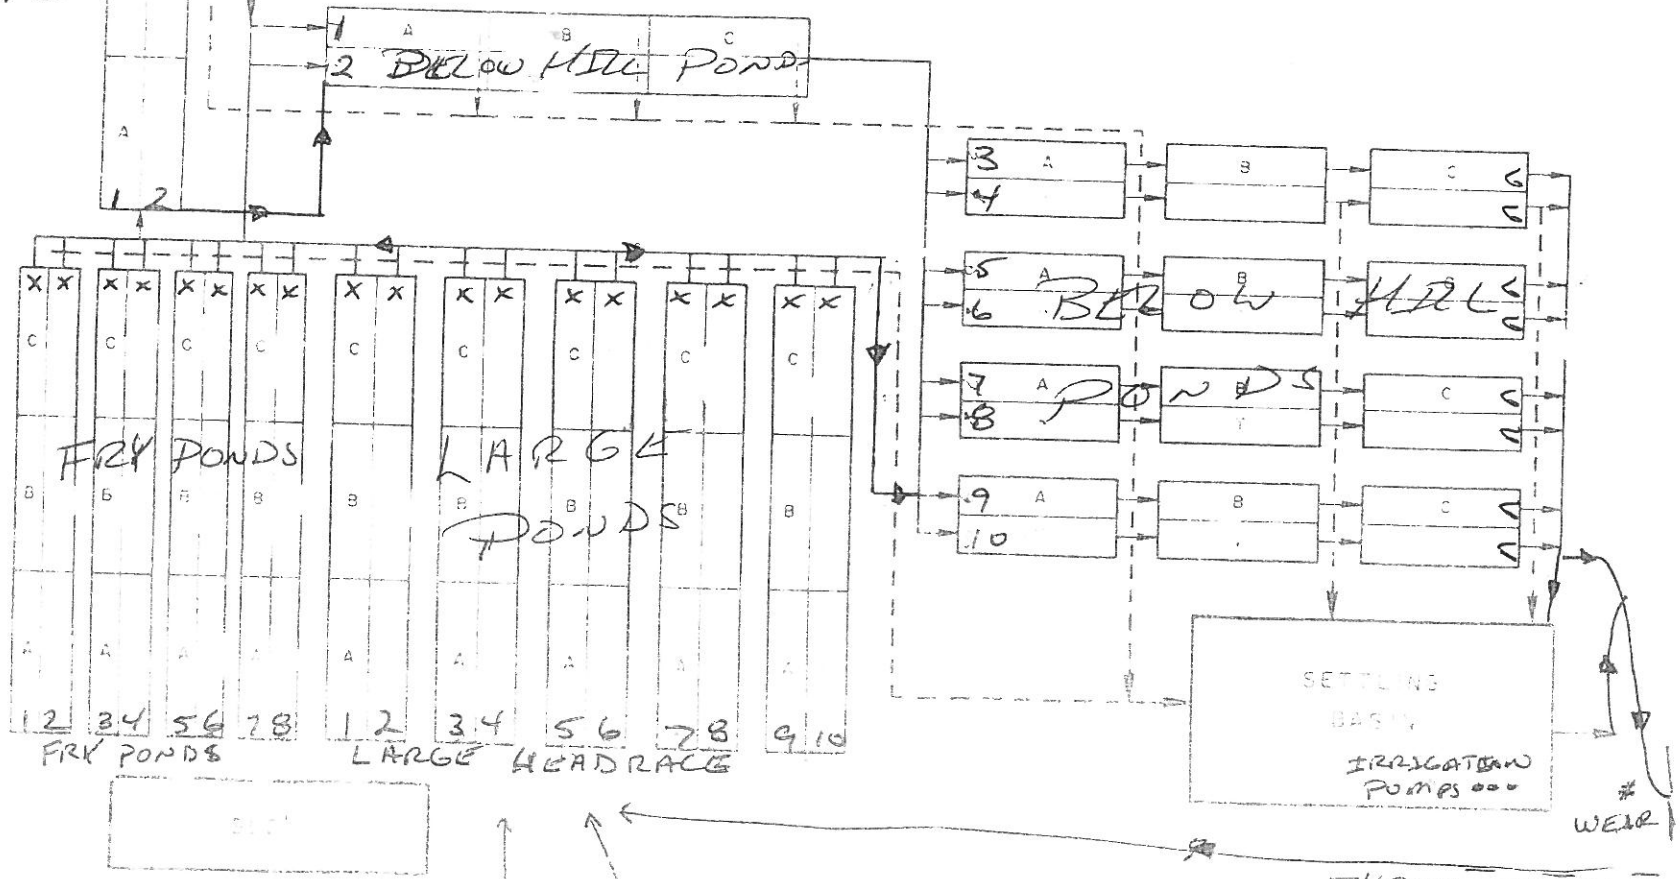 1 A B C
2 BELOW HILL POND
A
1 2
3 A B C
4
5 A B
6 BELOW HILL
7 A B C
8 PONDS
9 A B C
10
X X X X X X X X X X X X X X X X X X
C C C C C C C C C
FRY PONDS LARGE PONDS
B B B B B B B B B
A A A A A A A A A
1 2 3 4 5 6 7 8 1 2 3 4 5 6 7 8 9 10
FRY PONDS LARGE HEADRACE
SETTLING
BASIN
IRRIGATION
PUMPS
#
WEIR